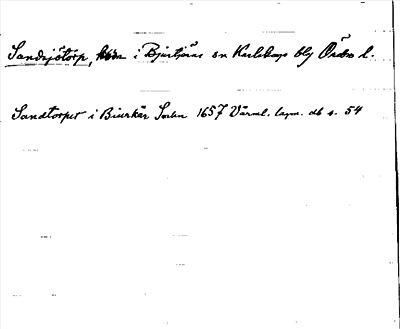 Sandsjötorp, i Bjurtjärns sn Karlskoga blg Örebro l.
Sandtorpet i Biurkär Socken 1657 Värml. lagm. db s. 54